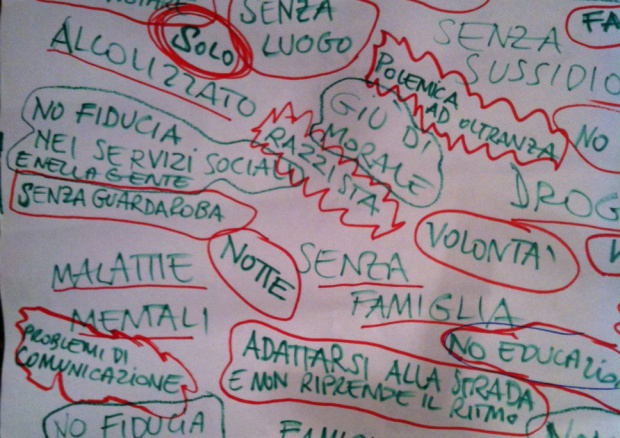 SENZA
LUOGO
SOLO
ALCOLIZZATO
SENZA
SUSSIDIO
FA
POLEMICA
AD OLTRANZA
NO FIDUCIA
NEI SERVIZI SOCIALI
E NELLA GENTE
GIÙ DI
MORALE
RAZZISTA
NO
DROG
SENZA GUARDAROBA
VOLONTA'
NOTTE
MALATTIE
MENTALI
SENZA
FAMIGLIA
PROBLEMI DI
COMUNICAZIONE
NO EDUCAZIO
ADATTARSI ALLA STRADA
E NON RIPRENDE IL RITMO
NO FIDUCIA